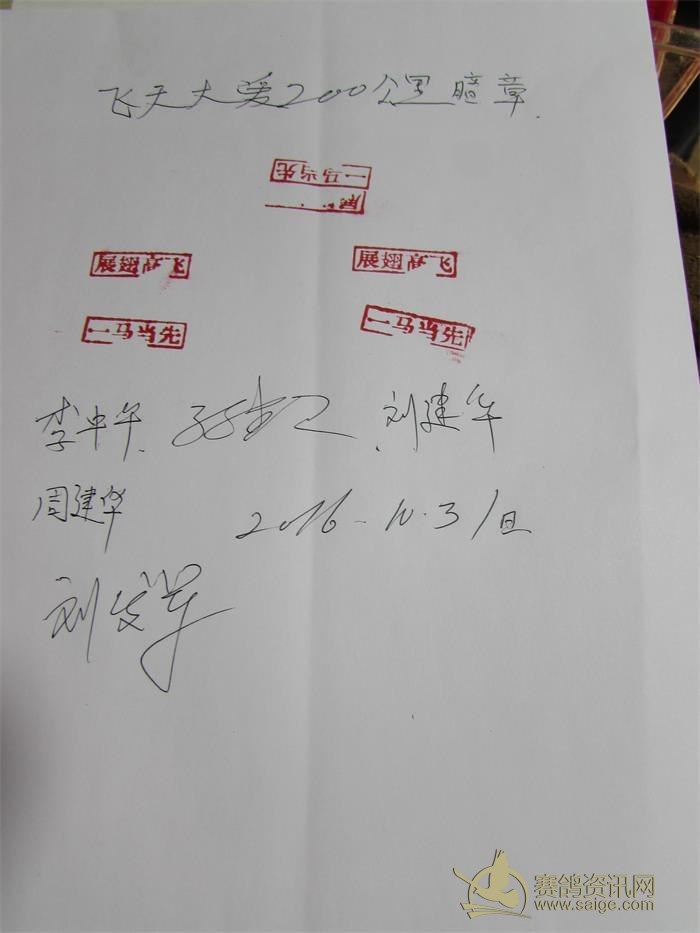 飞天大爱200公里暗章.
一马当先
展
展翅高飞 展翅高飞
一马当先 一马当先
李中午. 刘建华
周建华 2016-10.31日
刘发军
赛鸽资讯网
www.saige.com